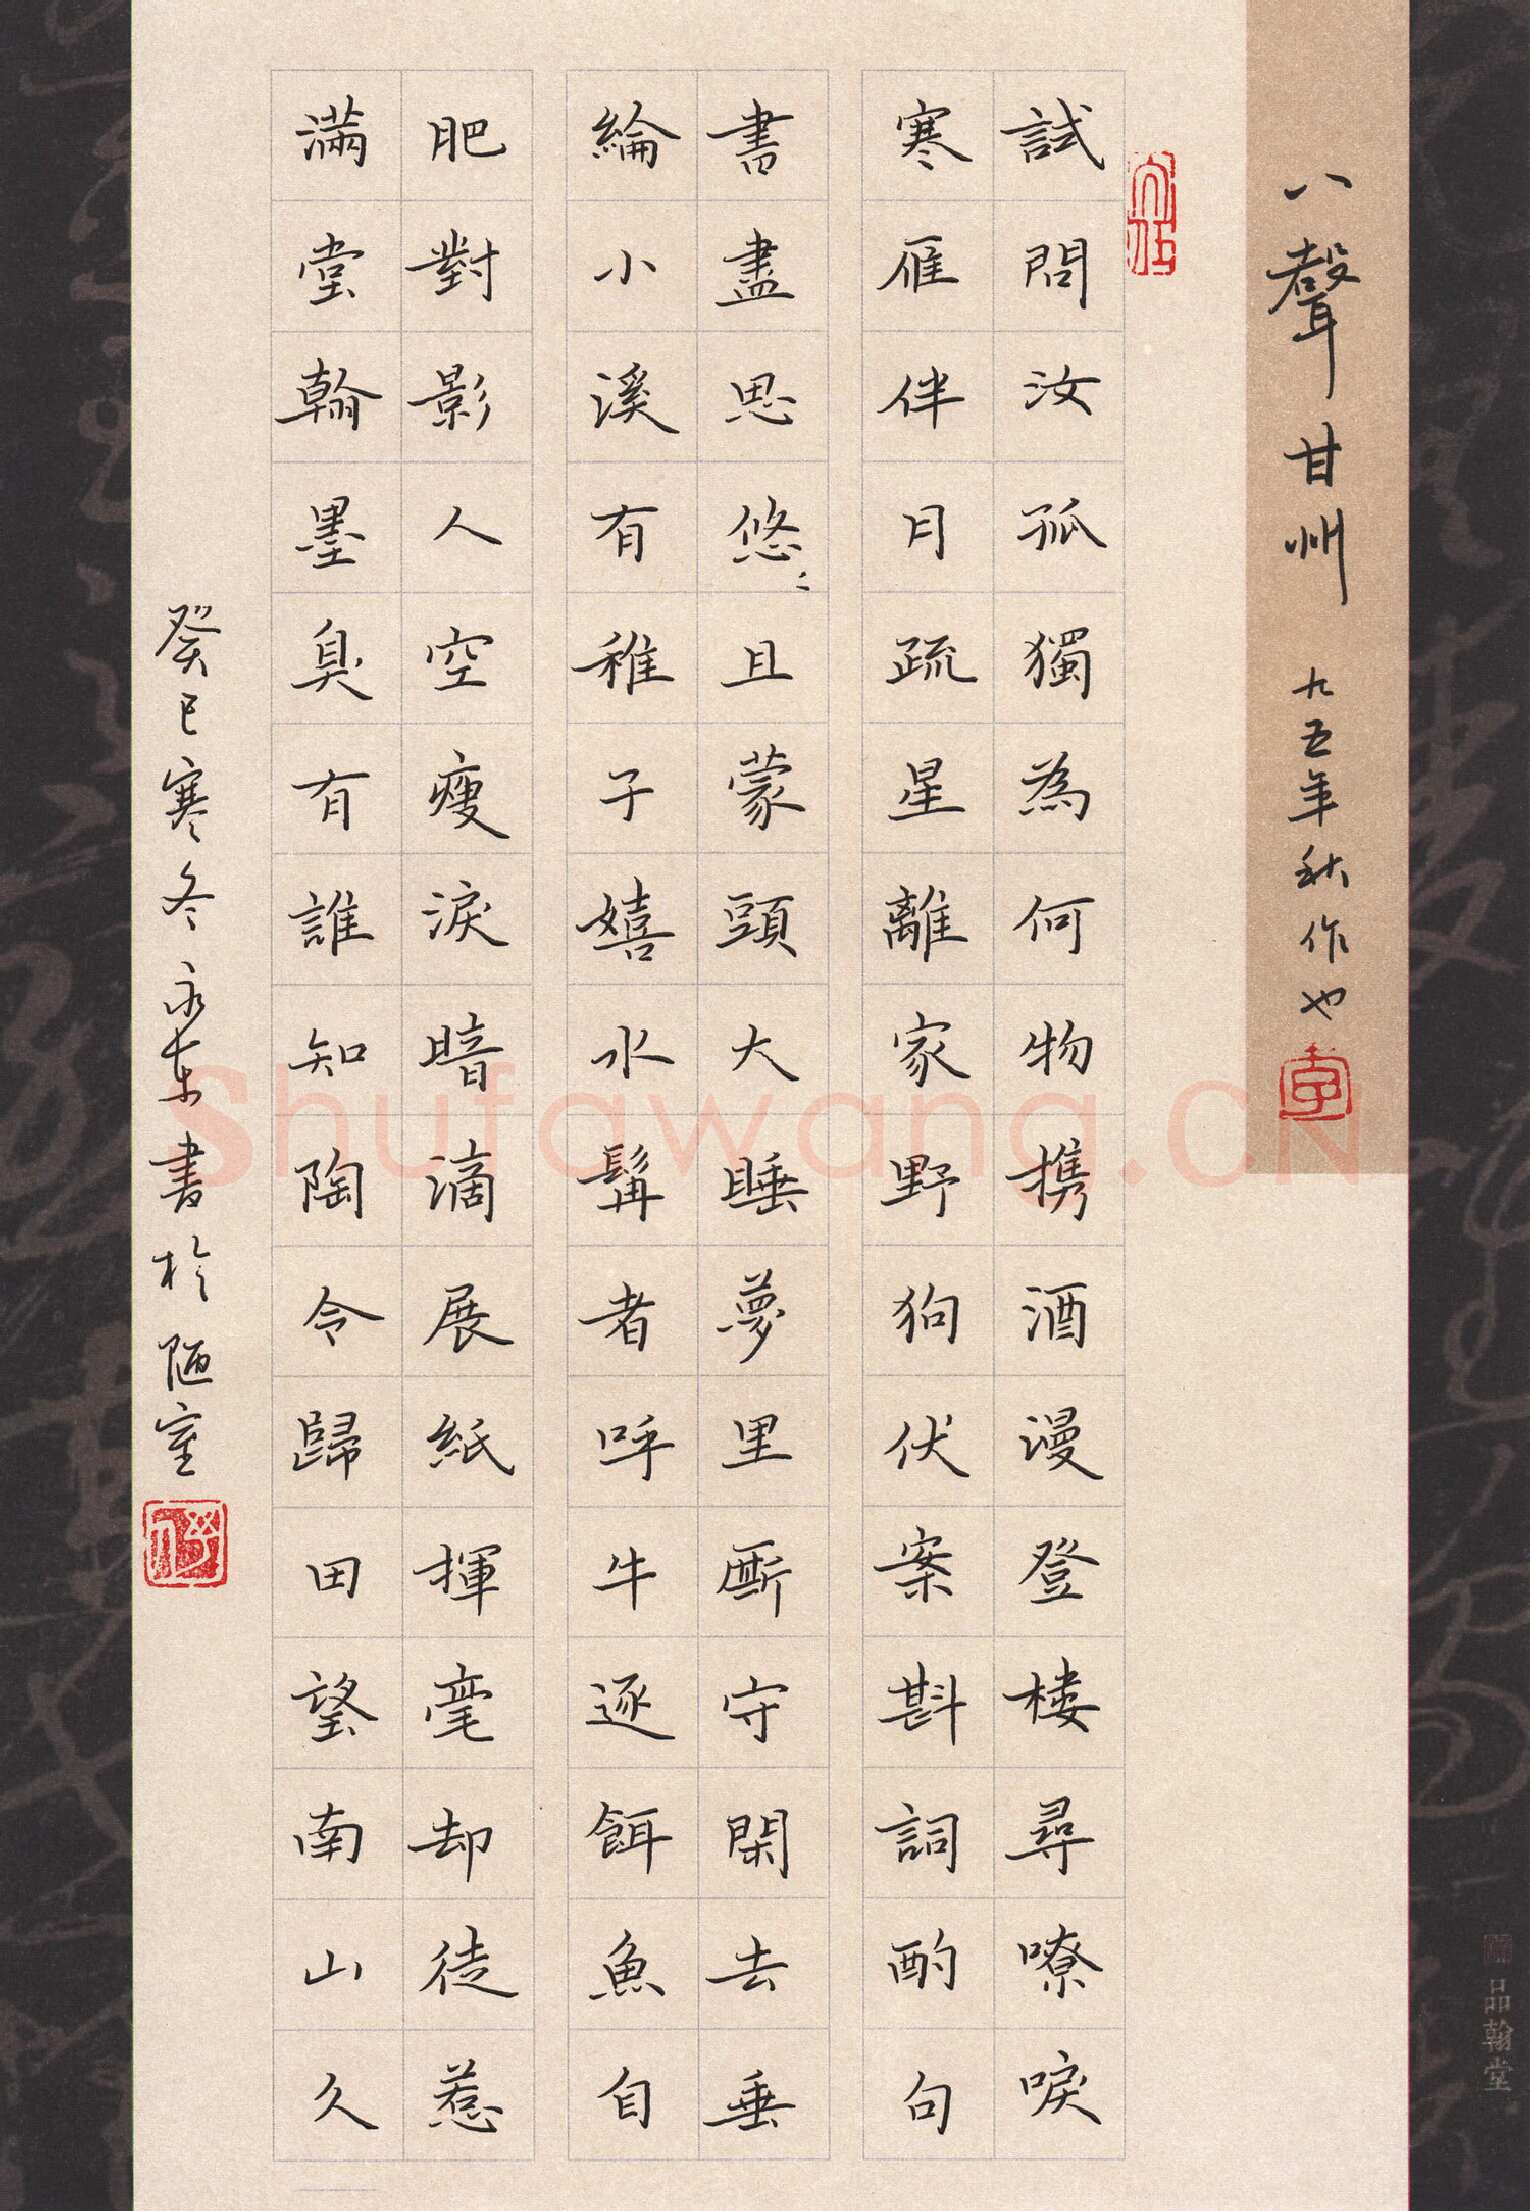 八聲甘州 九五年秋作也
試問汝孤獨為何物携酒漫登楼尋嘹唳
寒雁伴月疏星離家野狗伏案斟詞酌句
書盡思悠〻且蒙頭大睡夢里厮守閑去垂
綸小溪有稚子嬉水髯者呼牛逐餌魚自
肥對影人空瘦淚暗滴展紙揮毫却徒惹
滿堂翰墨臭有誰知陶令歸田望南山久
癸巳寒冬永東書於陋室
品翰堂
Shufawang.CN